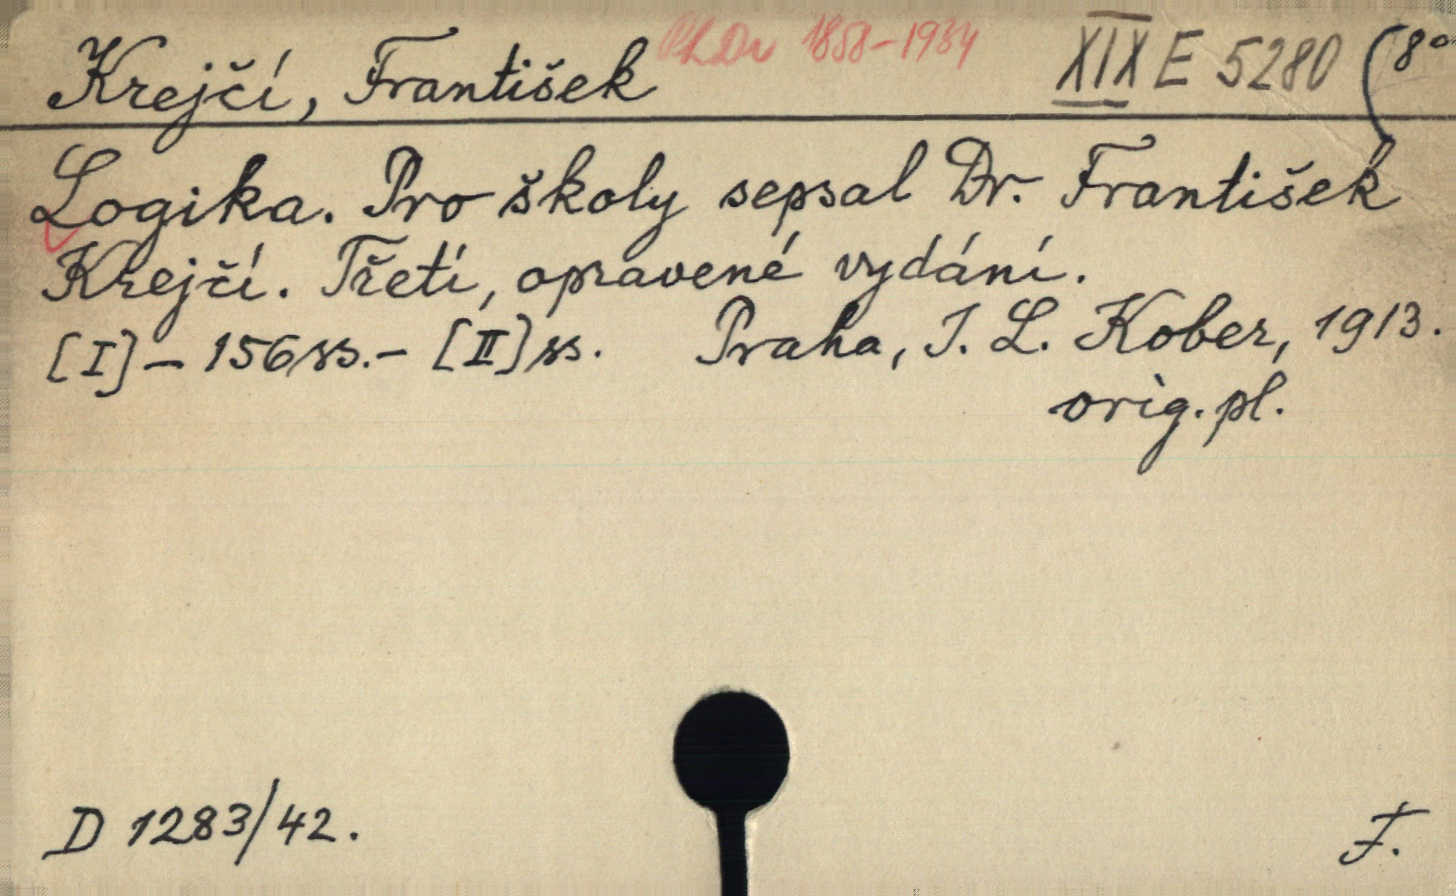 Krejčí, František PhDr 1858-1934 XIX E 5280 (8°
Logika. Pro školy sepsal Dr. František
Krejčí. Třetí, opravené vydání.
[I] - 156 ss. - [II] ss. Praha, I. L. Kober, 1913.
orig. pl.
D 1283/42.
F.